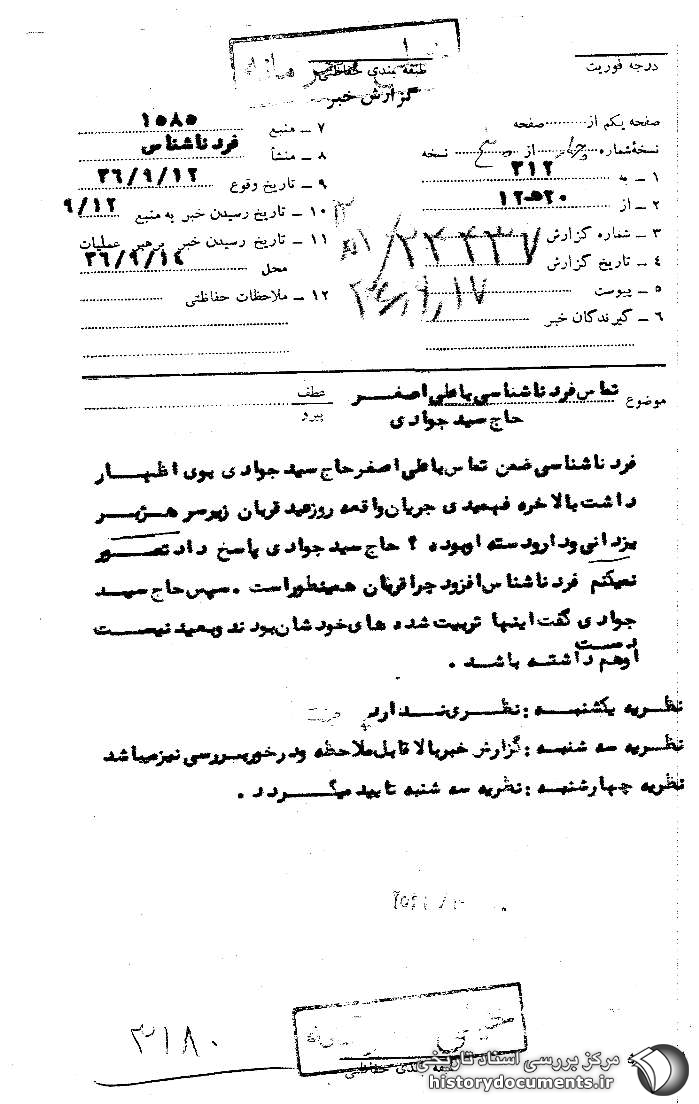 طبقه بندی حفاظتی
درجه فوریت
گزارش خبر
صفحه یکم از صفحه
نسخه شماره از نسخه
۱ - به ۳۱۲
۲ - از ۲۰ه۱۲
۳ - شماره گزارش ۲۲۴۳۷
۴ - تاریخ گزارش ۳۶/۹/۱۷
۵ - پیوست
۶ - گیرندگان خبر
۷ - منبع ۱۵۸۵
۸ - منشأ فرد ناشناس
۹ - تاریخ وقوع ۳۶/۹/۱۲
۱۰ - تاریخ رسیدن خبر به منبع ۹/۱۲
۱۱ - تاریخ رسیدن خبر برهبر عملیات
محل ۳۶/۹/۱۴
۱۲ - ملاحظات حفاظتی
موضوع تماس فرد ناشناسی با علی اصغر
حاج سید جوادی
عطف
پیرو
فرد ناشناسی ضمن تماس با علی اصغر حاج سید جوادی بوی اظهار
داشت بالاخره فهمیدی جریان واقعه روز عید قربان زیر سر هژبر
یزدانی و دارودسته او بوده ؟ حاج سید جوادی پاسخ داد تصور
نمیکنم فرد ناشناس افزود چرا قربان همینطور است . سپس حاج سید
جوادی گفت اینها تربیت شده های خودشان بودند و بعید نیست
دست
او هم داشته باشد .
نظریه یکشنبه : نظری ندارد
نظریه سه شنبه : گزارش خبر بالا قابل ملاحظه و در خور بررسی نیز میباشد
نظریه چهارشنبه : نظریه سه شنبه تایید میگردد .
۳۱۸۰
خیلی محرمانه
طبقه بندی حفاظتی
مرکز بررسی اسناد تاریخی
historydocuments.ir